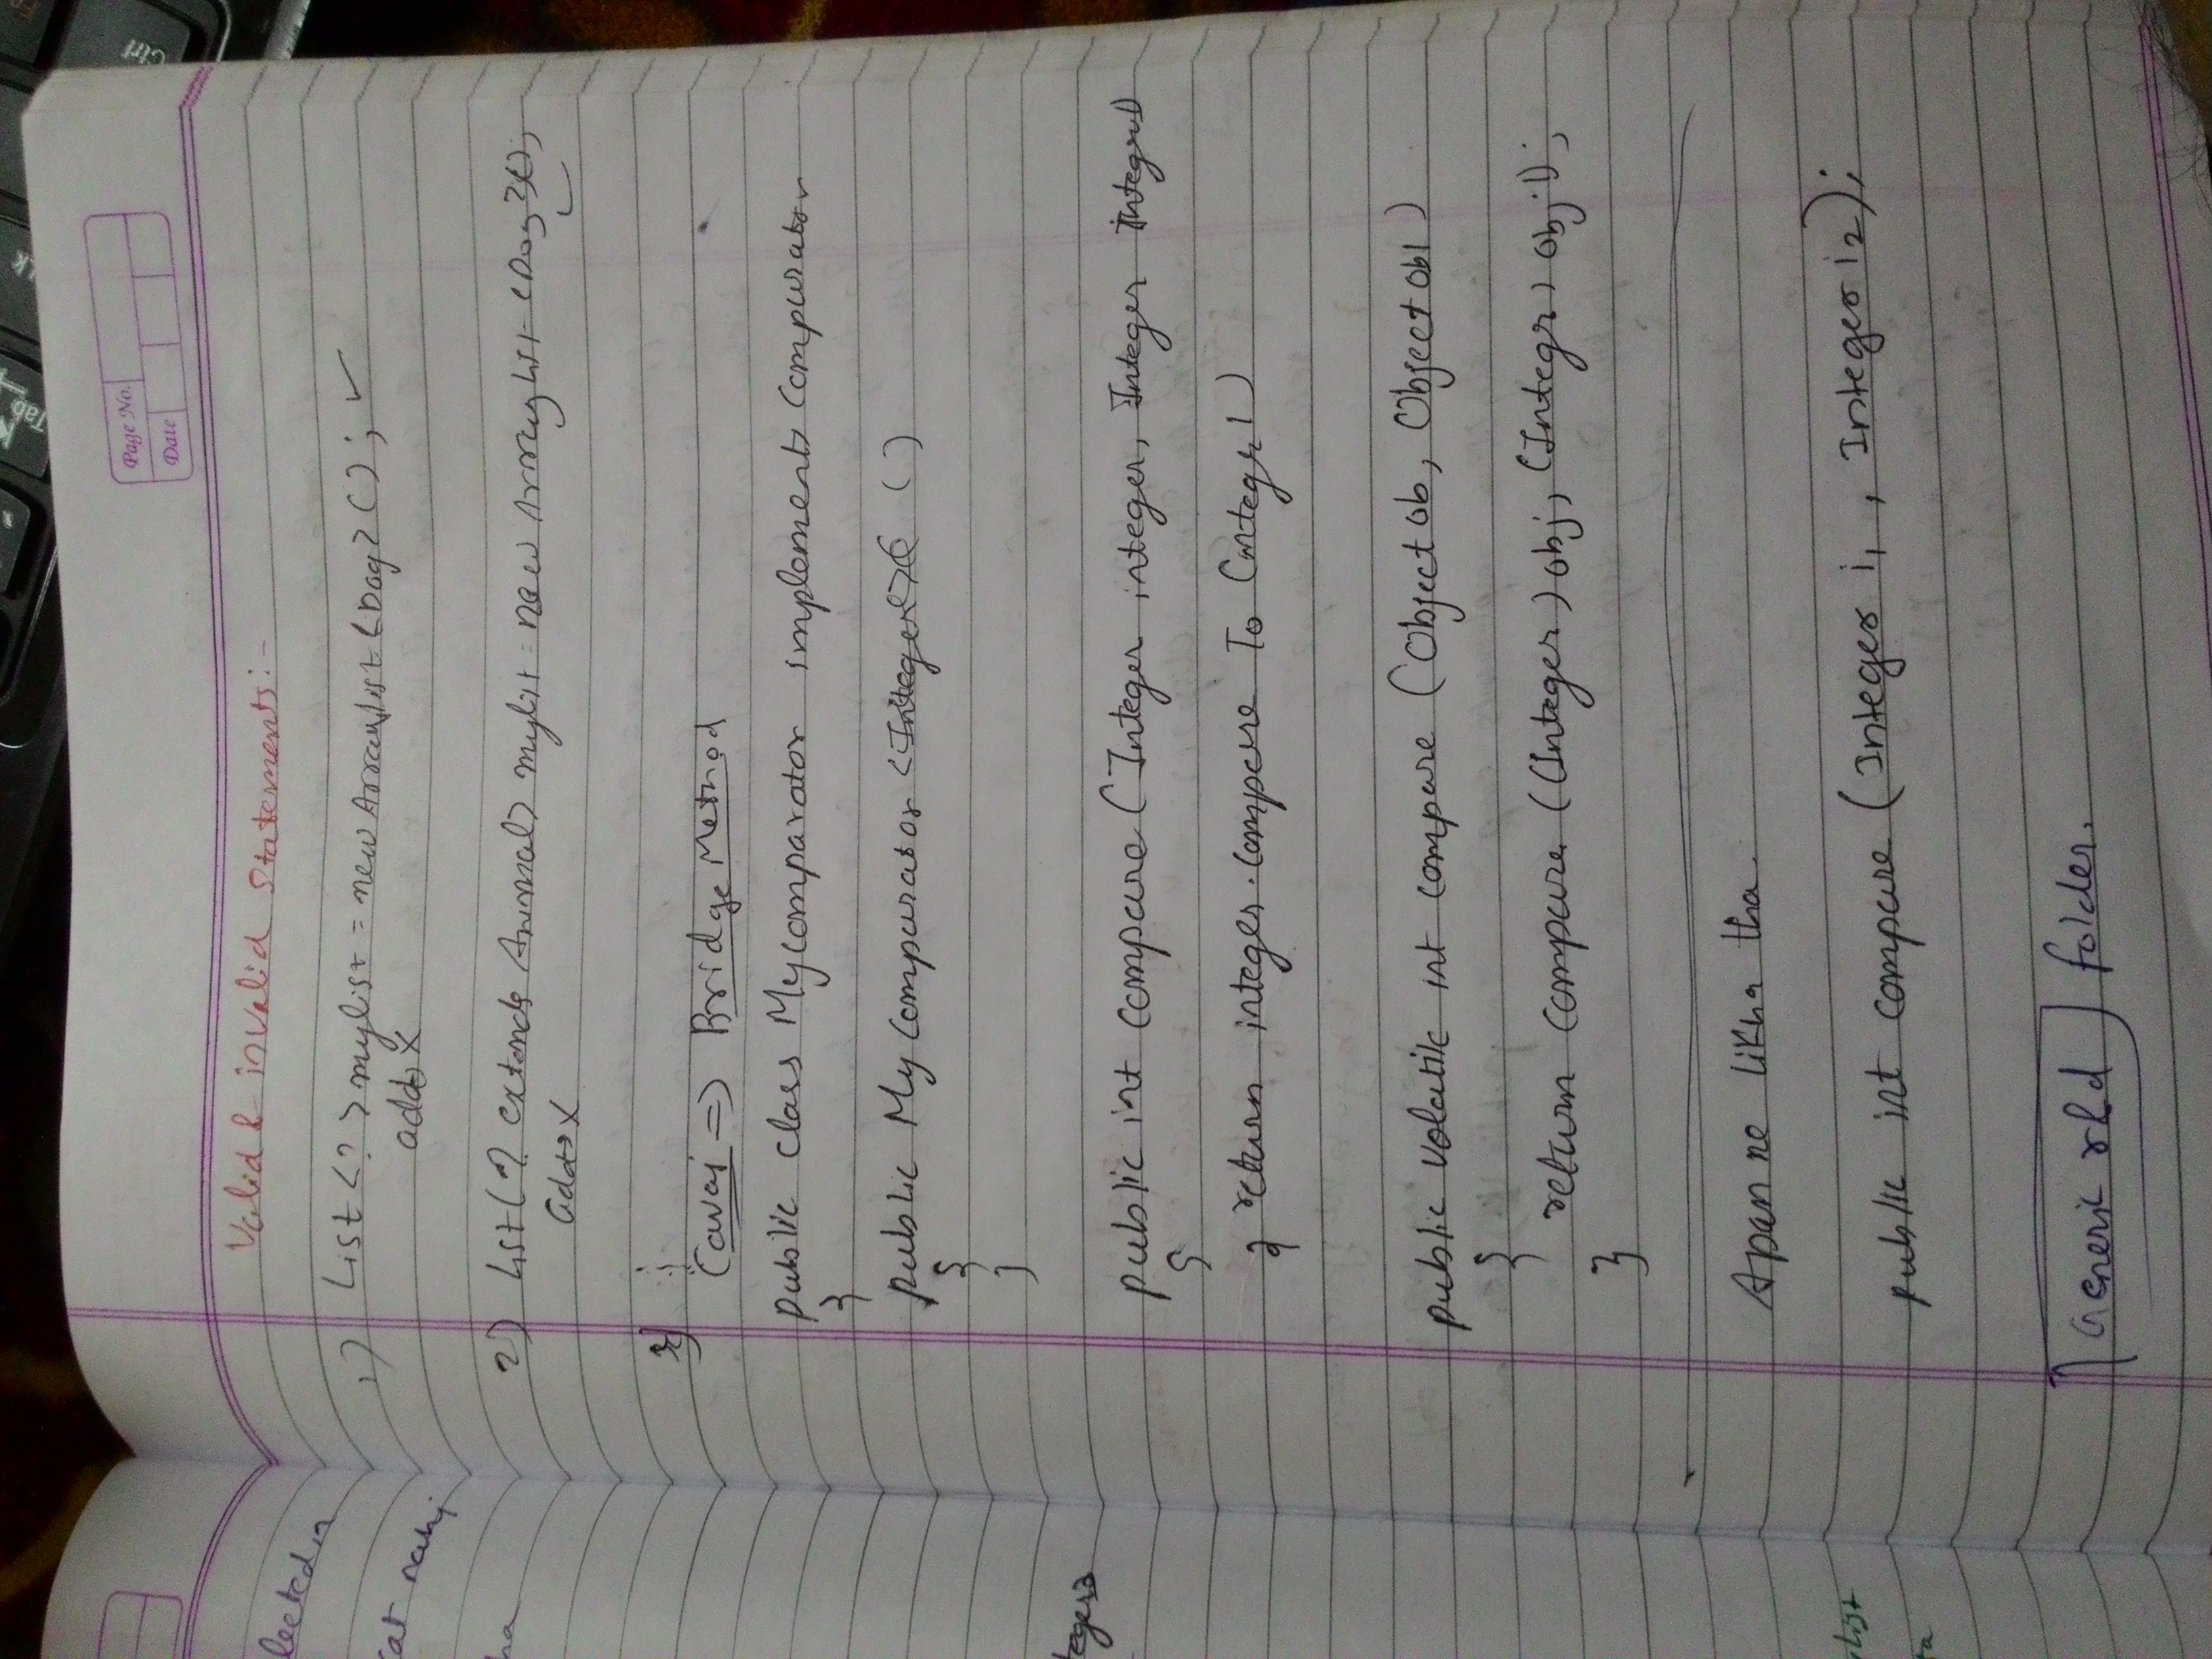 Page No.
Date
Valid & invalid Statements:-
1) List <?> mylist = new ArrayList <Dog> (); ✓
add → X
2) List <? extends Animal> mylist = new ArrayList <Dog>();
add → X ✓
3)
(avaj => Bridge Method
public class Mycomparator implements Comparator
}
public My Comparator <Integer> ()
{
}
public int compare (Integer integer, Integer integer1)
{
} return integer.compare To (integer1)
public volatile int compare (Object ob, Object ob1)
{
return compare ((Integer) obj, (Integr) obj1);
}
Apan ne likha tha.
public int compare (Integer i1 , Integer i2);
Generic r&d folder.
lected in
cat nahi
ha
tegers
ylist
ta
Tab
Ctrl